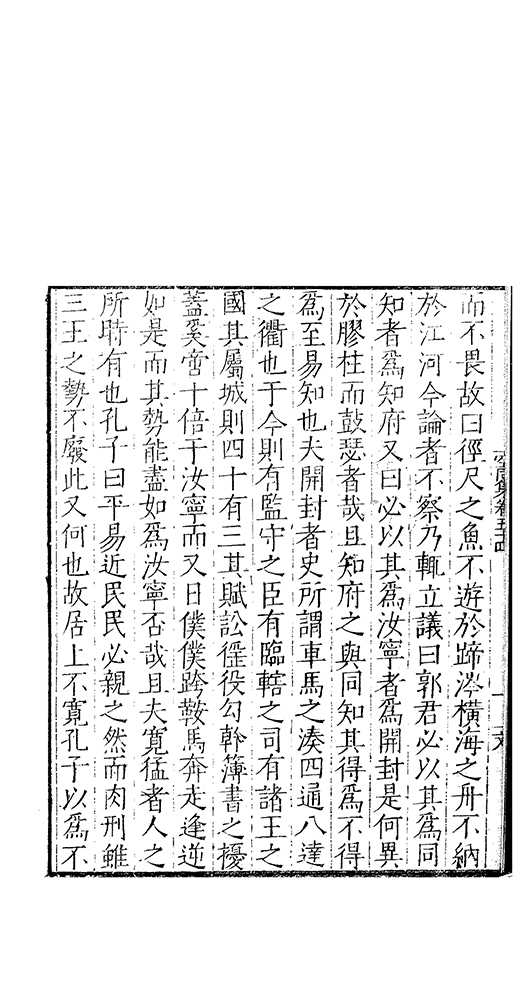 而不畏故曰徑尺之魚不遊於蹄涔橫海之舟不納
於江河今論者不察乃輒立議曰郭君必以其爲同
知者爲知府又曰必以其爲汝寧者爲開封是何異
於膠柱而鼓瑟者哉且知府之與同知其得爲不得
爲至易知也夫開封者史所謂車馬之湊四通八達
之衢也于今則有監守之臣有臨轄之司有諸王之
國其屬城則四十有三其賦訟徭役勾幹簿書之擾
蓋奚啻十倍于汝寧而又日僕僕跨鞍馬奔走逢逆
如是而其勢能盡如爲汝寧否哉且夫寛猛者人之
所時有也孔子曰平易近民民必親之然而肉刑雖
三王之勢不廢此又何也故居上不寛孔子以爲不